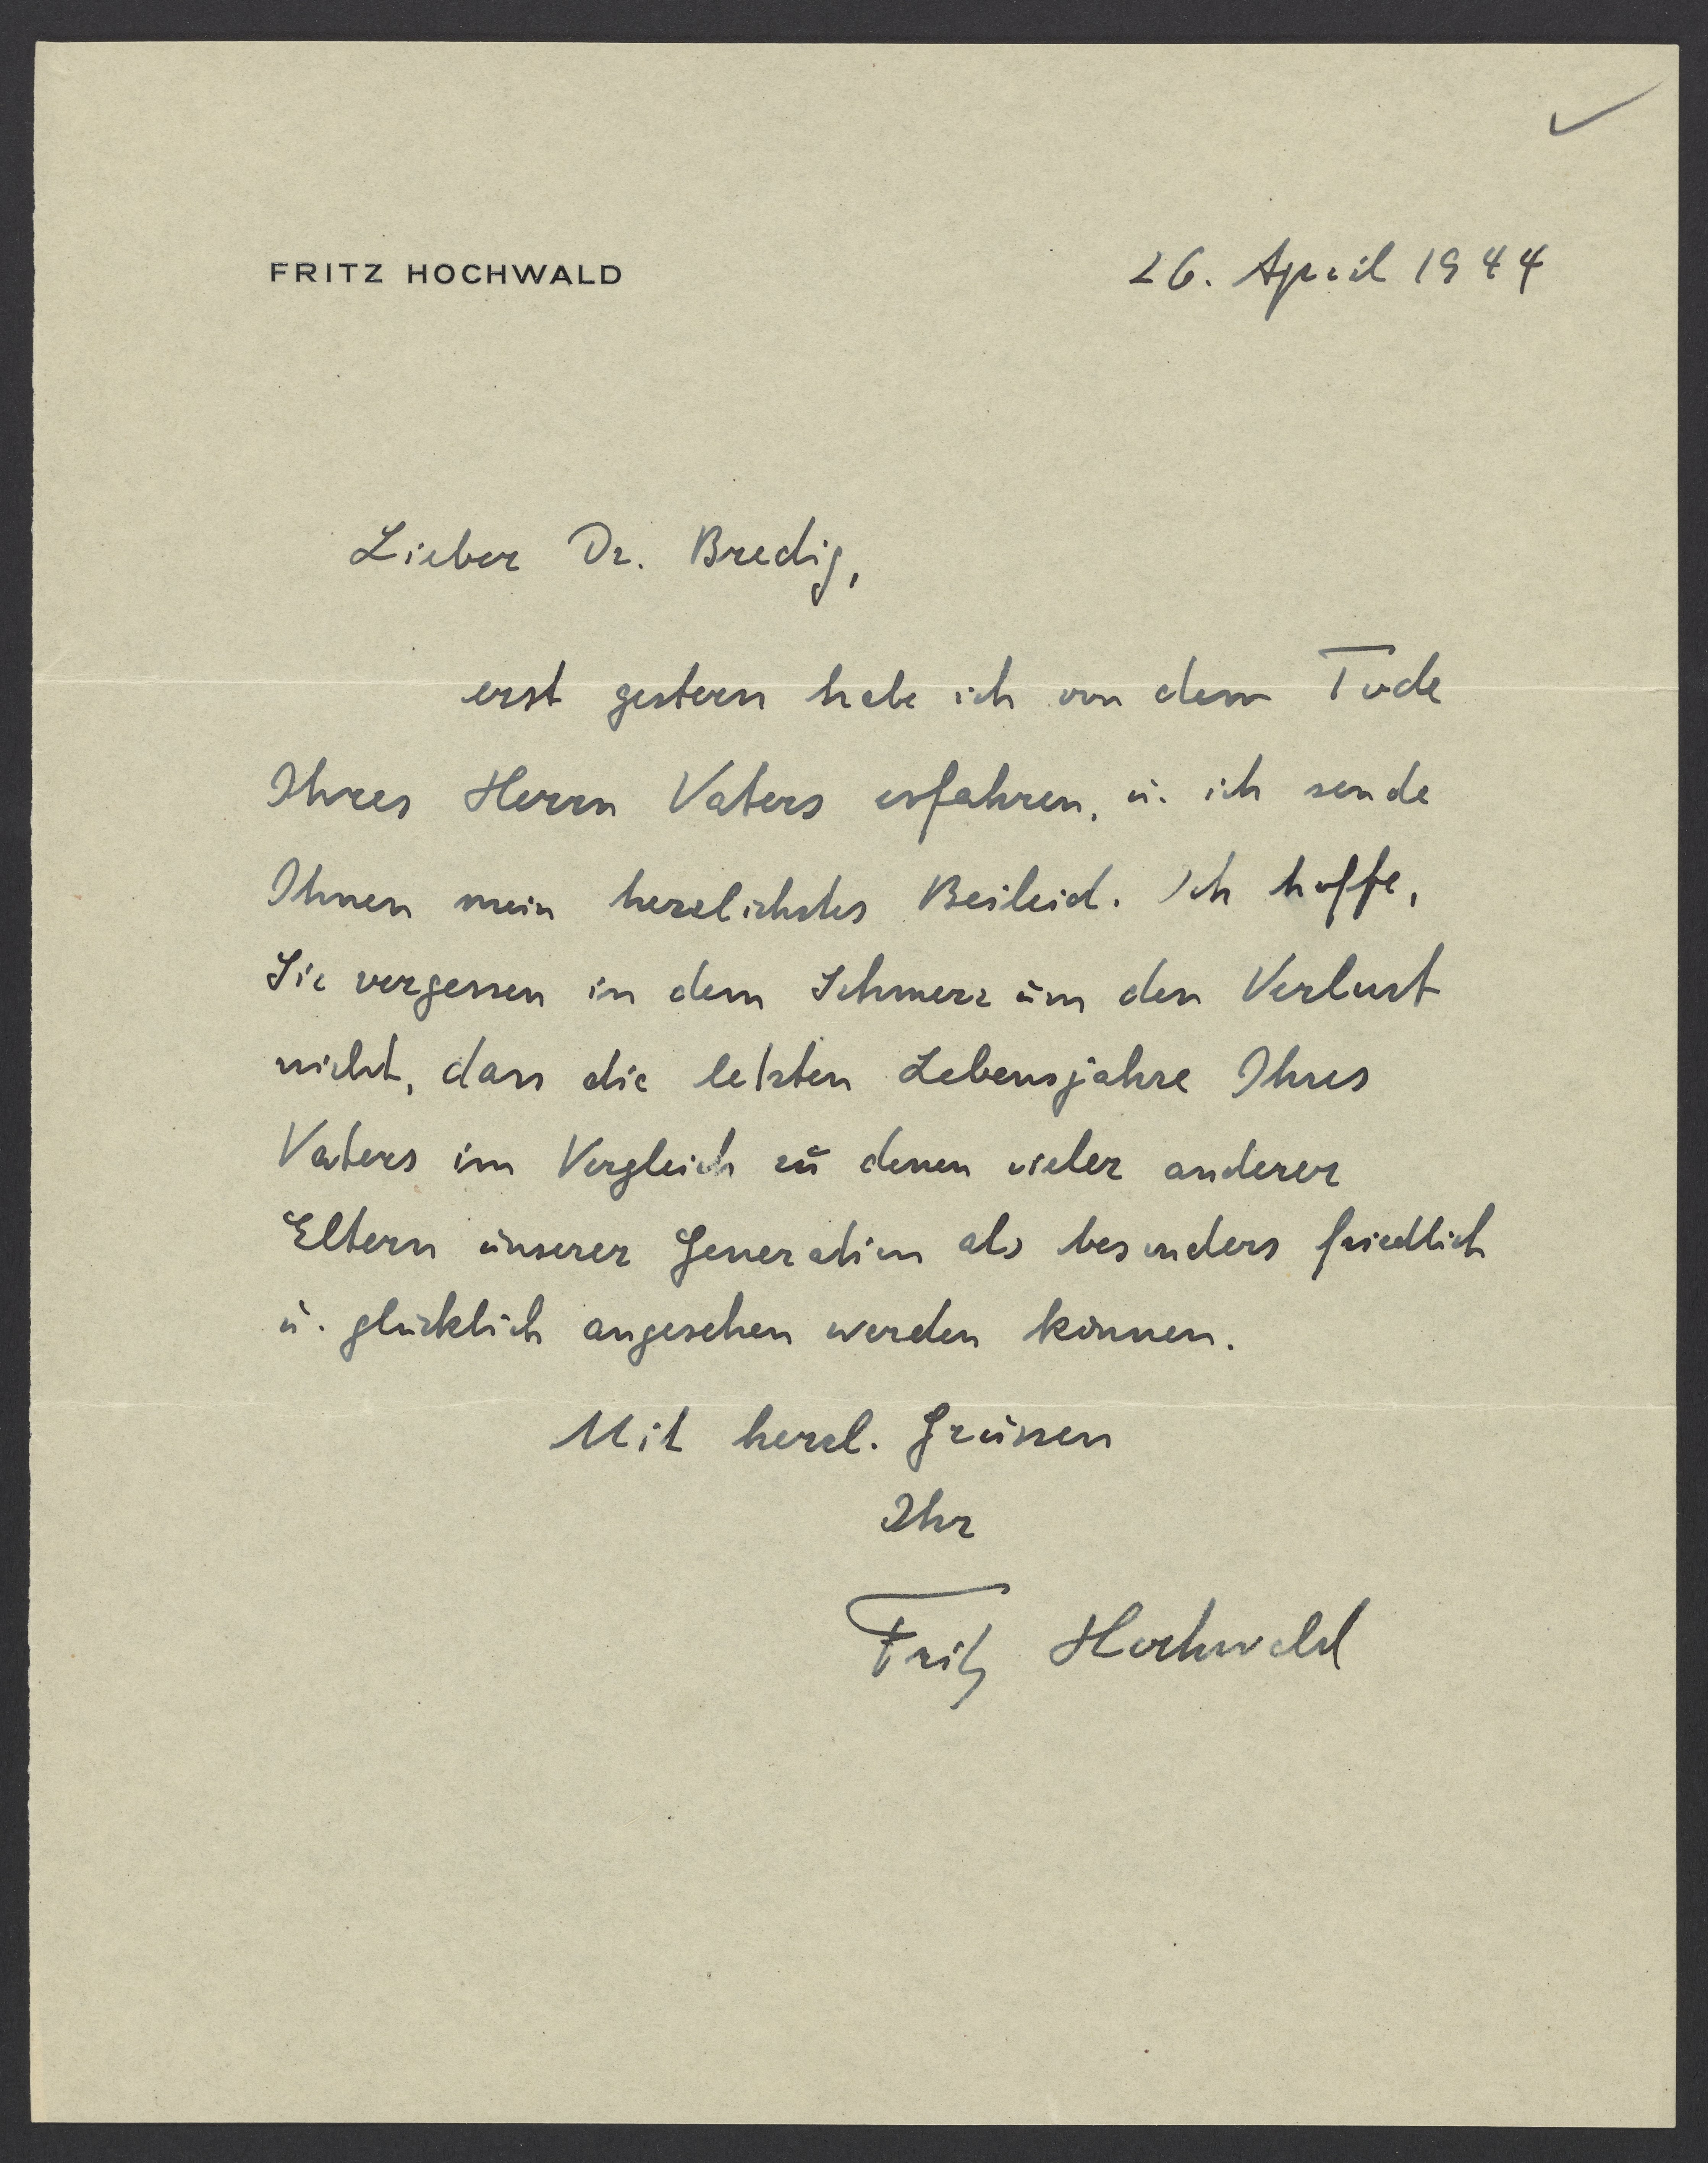 FRITZ HOCHWALD
26. April 1944
Lieber Dr. Bredig,
erst gestern habe ich von dem Tode
Ihres Herrn Vaters erfahren, u. ich sende
Ihnen mein herzlichstes Beileid. Ich hoffe,
Sie vergessen in dem Schmerz um den Verlust
nicht, dass die letzten Lebensjahre Ihres
Vaters im Vergleich zu denen vieler anderer
Eltern unserer Generation als besonders friedlich
u. glücklich angesehen werden können.
Mit herzl. Grüssen
Ihr
Fritz Hochwald